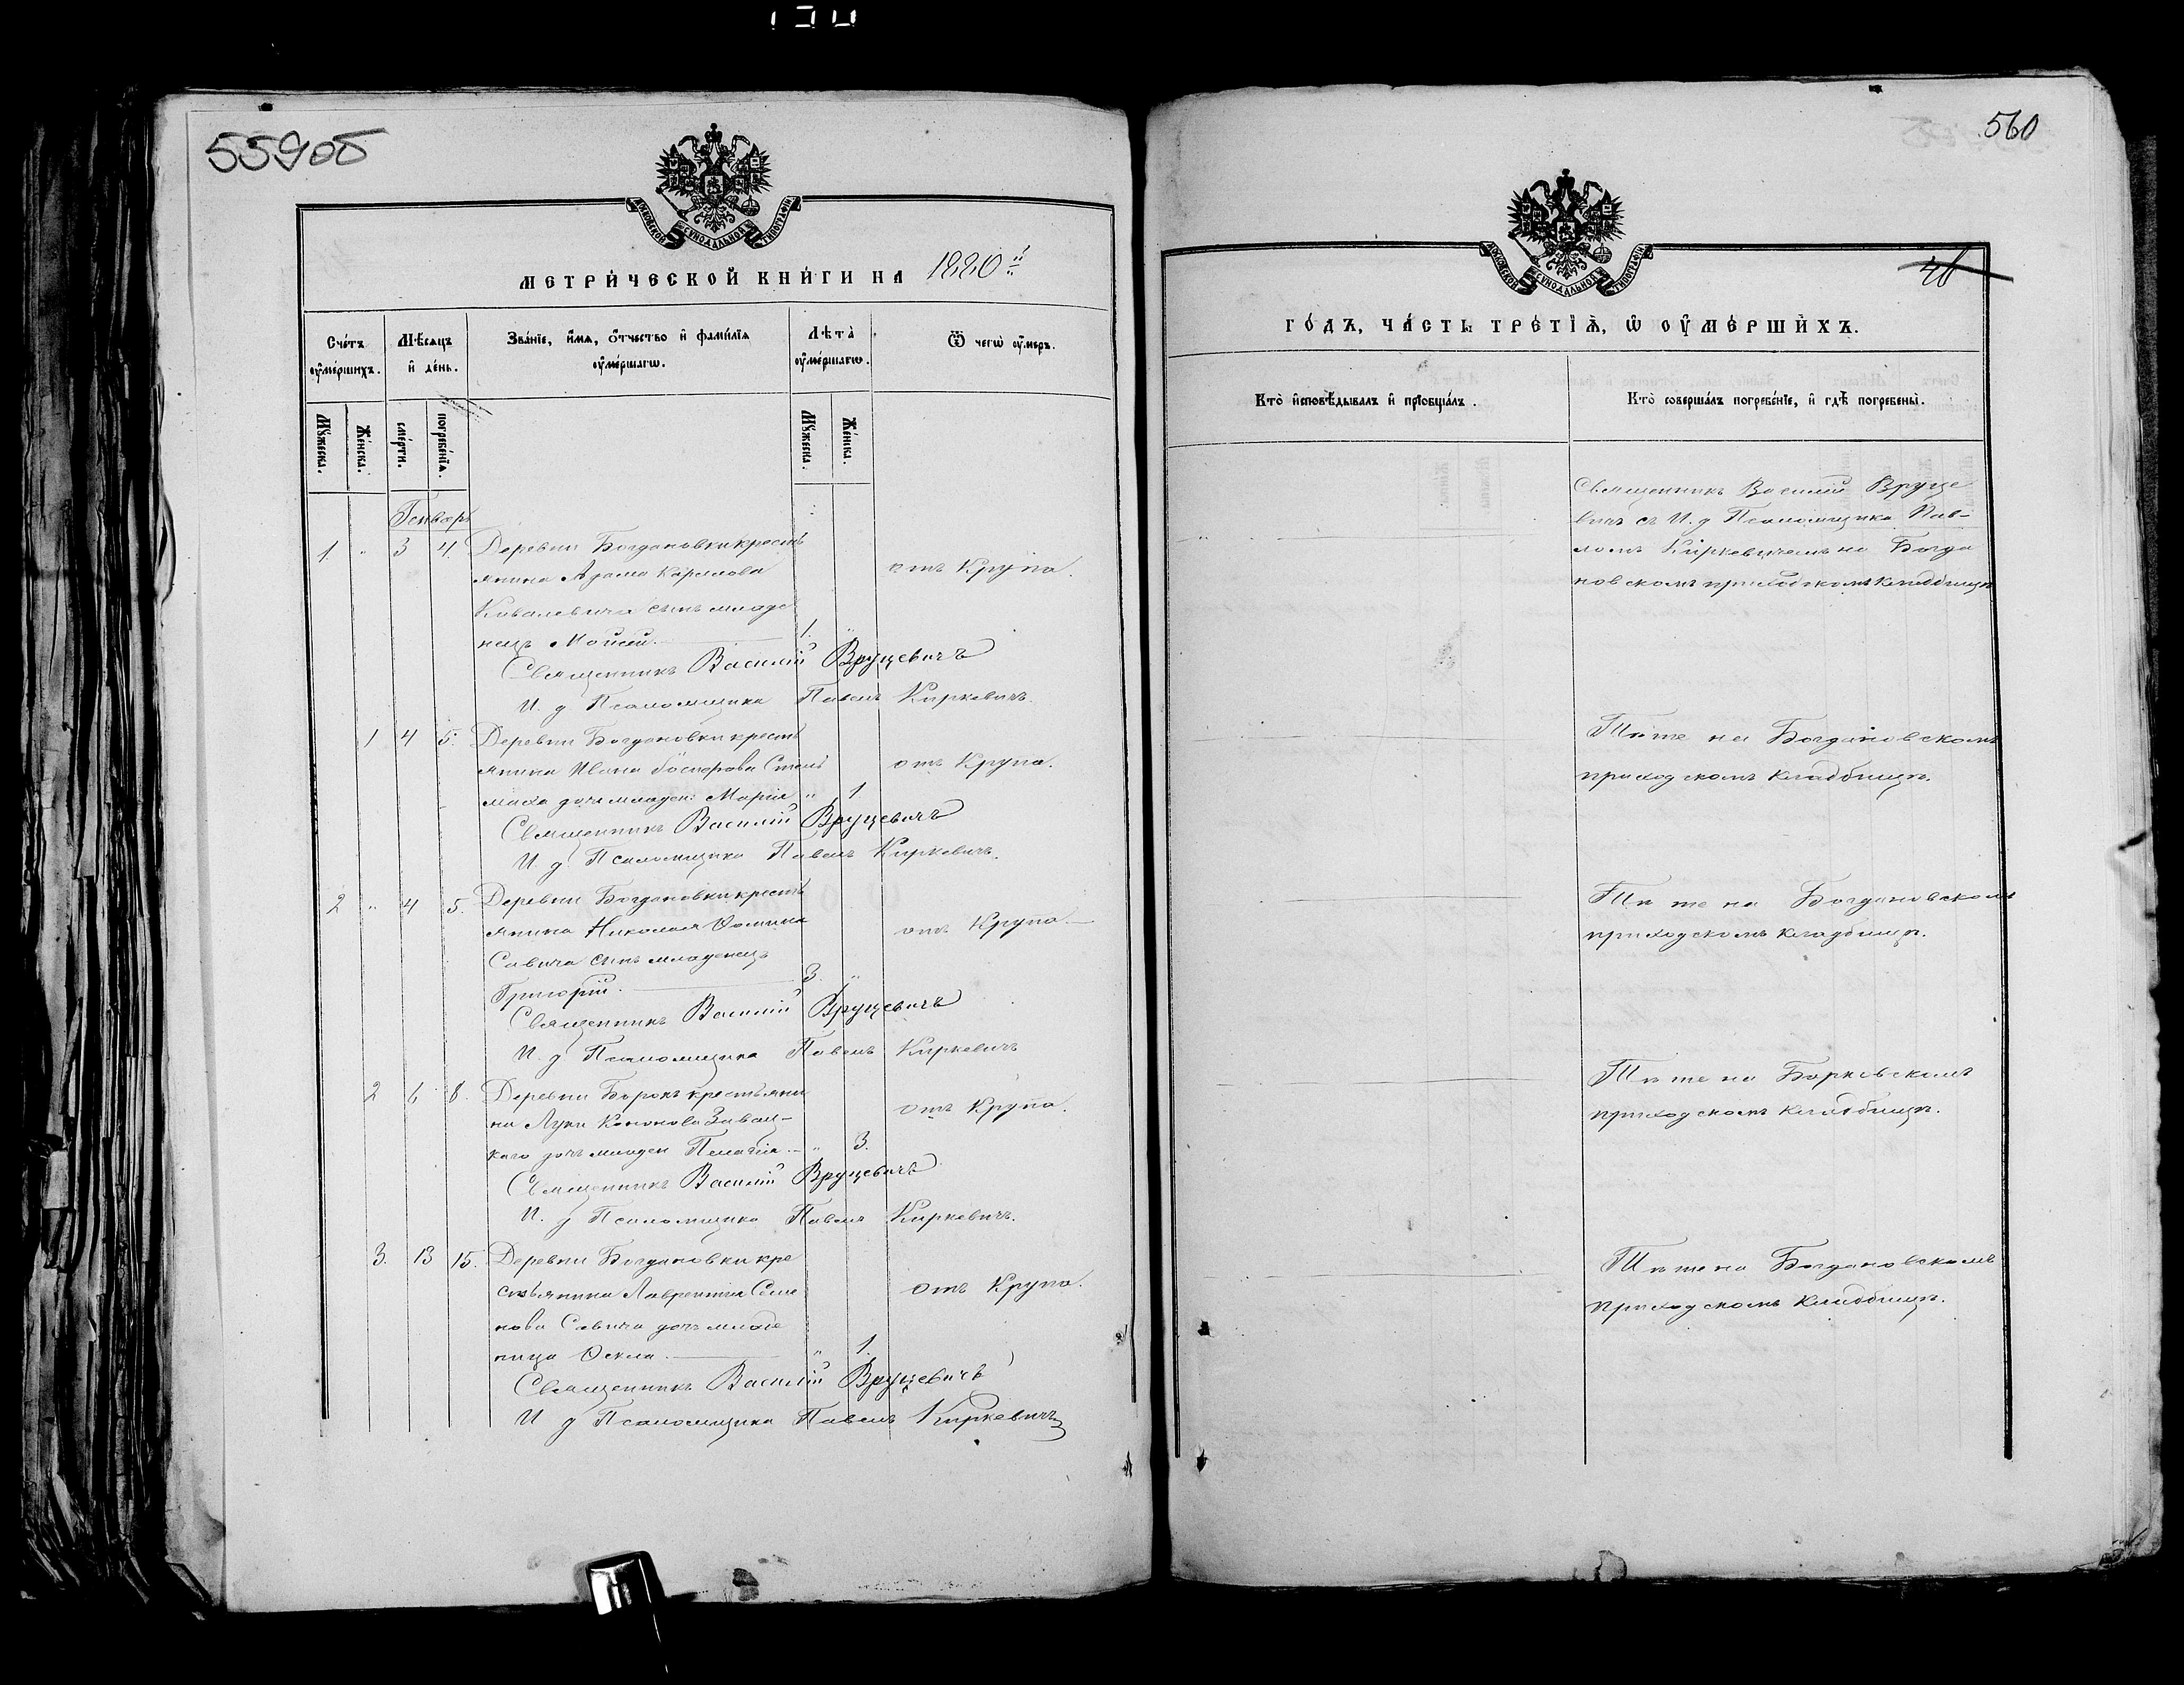 559об
МОСКОВСКОЙ СѴНОДАЛЬНОЙ ТИПОГРАФІИ
МЕТРИ́ЧЕСКОЙ КНИ́ГИ НА 1880й
Сче́тъ ѹ҆ме́ршихъ.
Мѣ́сяцъ и҆ де́нь.
Зва́нїе, и҆́мѧ, ѻ҆́тчество и҆ фами́лїѧ ѹ҆ме́ршагѡ.
Лѣта̀ ѹ҆ме́ршагѡ.
Ѿ чегѡ̀ ѹ҆́меръ.
Мꙋ́жеска.
Же́нска.
сме́рти.
погребе́нїѧ.
Мꙋ́жеска.
Же́нска.
Генварь
1. " 3 4. Деревни Богдановки кресть
янина Адама Карлова
отъ Крупа.
Ковалевича сынъ младе
нецъ Мойсей. 1. "
Священникъ Василій Вруцевичъ
И. д Псаломщика Павелъ Киркевичъ.
1 4 5. Деревни Богдановки кресть
янина Ивана
отъ Крупа.
дочь младен: Марія " 1
Священникъ Василій Вруцевичъ
И. д. Псаломщика Павелъ Киркевичъ.
2 " 4 5. Деревни Богдановки кресть
янина Николая Ѳомина
отъ Крупа
Савича сынъ младенецъ
Григорій. 3. "
Священникъ Василій Вруцевичъ
И. д Псаломщика Павелъ Киркевичъ
2 6 8. Деревни Борокъ крестьяни
на Луки Кононова Завад-
отъ Крупа.
каго дочь младен Пелагія. " 3.
Священникъ Василій Вруцевичъ
И. д Псаломщика Павелъ Киркевичъ.
3. 13 15. Деревни Богдановки кре
стьянина Лаврентія Семе
отъ Крупа.
нова Савича дочь младе
ница Ѳекла. " 1.
Священникъ Василій Вруцевичъ
И д Псаломщика Павелъ Киркевичъ
560
МОСКОВСКОЙ СѴНОДАЛЬНОЙ ТИПОГРАФІИ
ГО́ДЪ, ЧА́СТЬ ТРЕ́ТЇѦ, Ѡ҆ ОУ҆МЕ́РШИХЪ.
Кто̀ и҆сповѣ́дывалъ и҆ прїѡбща́лъ.
Кто̀ соверша́лъ погребе́нїе, и҆ гдѣ̀ погребены̀.
Священникъ Василій Вруце
вичъ съ И. д Псаломщика Пав-
ломъ Киркевичемъ на Богда
новскомъ приходскомъ кладбищѣ
Тѣ же на Богдановскомъ
приходскомъ кладбищѣ.
Тѣ же на Богдановскомъ
приходскомъ кладбищѣ.
Тѣ же на Борковскомъ
приходскомъ кладбищѣ.
Тѣ же на Богдановскомъ
приходскомъ кладбищѣ.